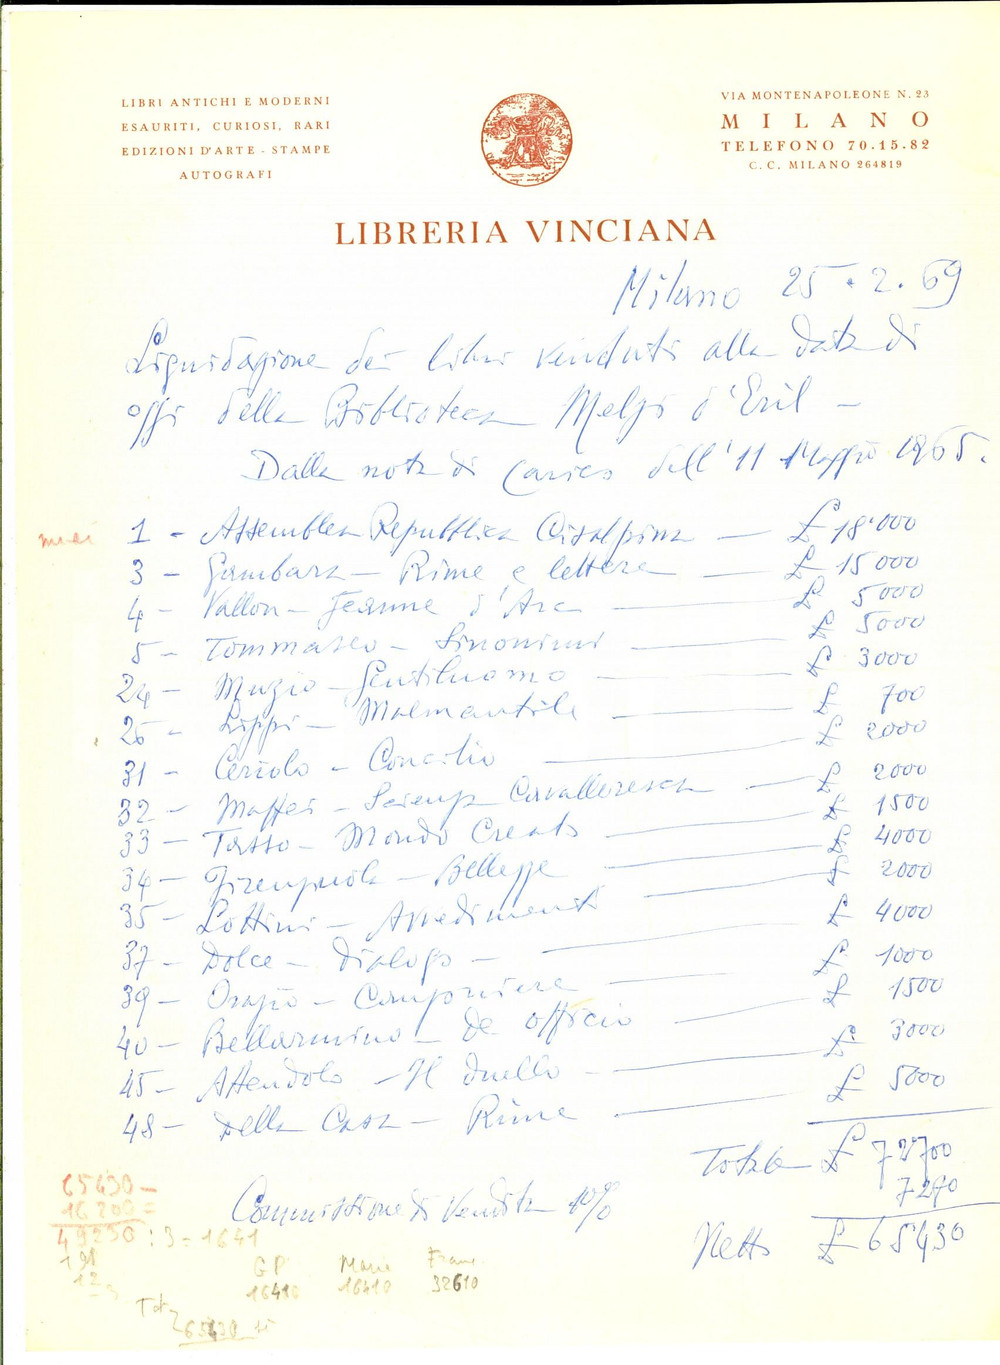 LIBRI ANTICHI E MODERNI
ESAURITI, CURIOSI, RARI
EDIZIONI D'ARTE - STAMPE
AUTOGRAFI
VIA MONTENAPOLEONE N. 23
MILANO
TELEFONO 70.15.82
C. C. MILANO 264819
LIBRERIA VINCIANA
Milano 25.2.69
Liquidazione dei libri venduti alla data di
oggi della Biblioteca Melzi d'Eril -
Dalla nota di carico dell'11 Maggio 1965.
1 - Assemblea Repubblica Cisalpina — £ 18'000
3 - Gambara - Rime e lettere — £ 15000
4 - Vallon - Jeanne d'Arc — £ 5000
5 - Tommaseo - Sinonimi — £ 5000
24 - Muzio - Gentiluomo — £ 3000
25 - Lippi - Malmantile — £ 700
31 - Ceriolo - Concilio — £ 2000
32 - Maffei - Scienza Cavalleresca — £ 2000
33 - Tasso - Mondo Creato — £ 1500
34 - Firenzuola - Bellezze — £ 4000
35 - Lottini - Avvedimenti — £ 2000
37 - Dolce - Dialogo — £ 4000
39 - Orazio - Campriniera — £ 1000
40 - Bellarmino - De officio — £ 1500
45 - Attendolo - Il duello — £ 3000
48 - Della Casa - Rime — £ 5000
Totale £ 72700
Commissione di Vendita 10% 7270
Netto £ 65430
65430 -
16200 =
49230 : 3 = 1641
GP Marie Franc
16410 16410 32610
Tot
65430